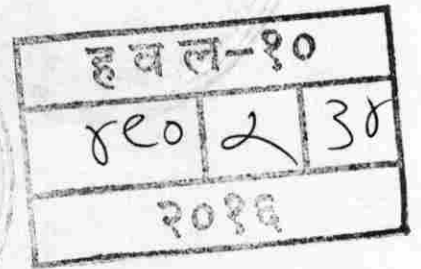 हवल-१०
४९० २ ३४
२०१६